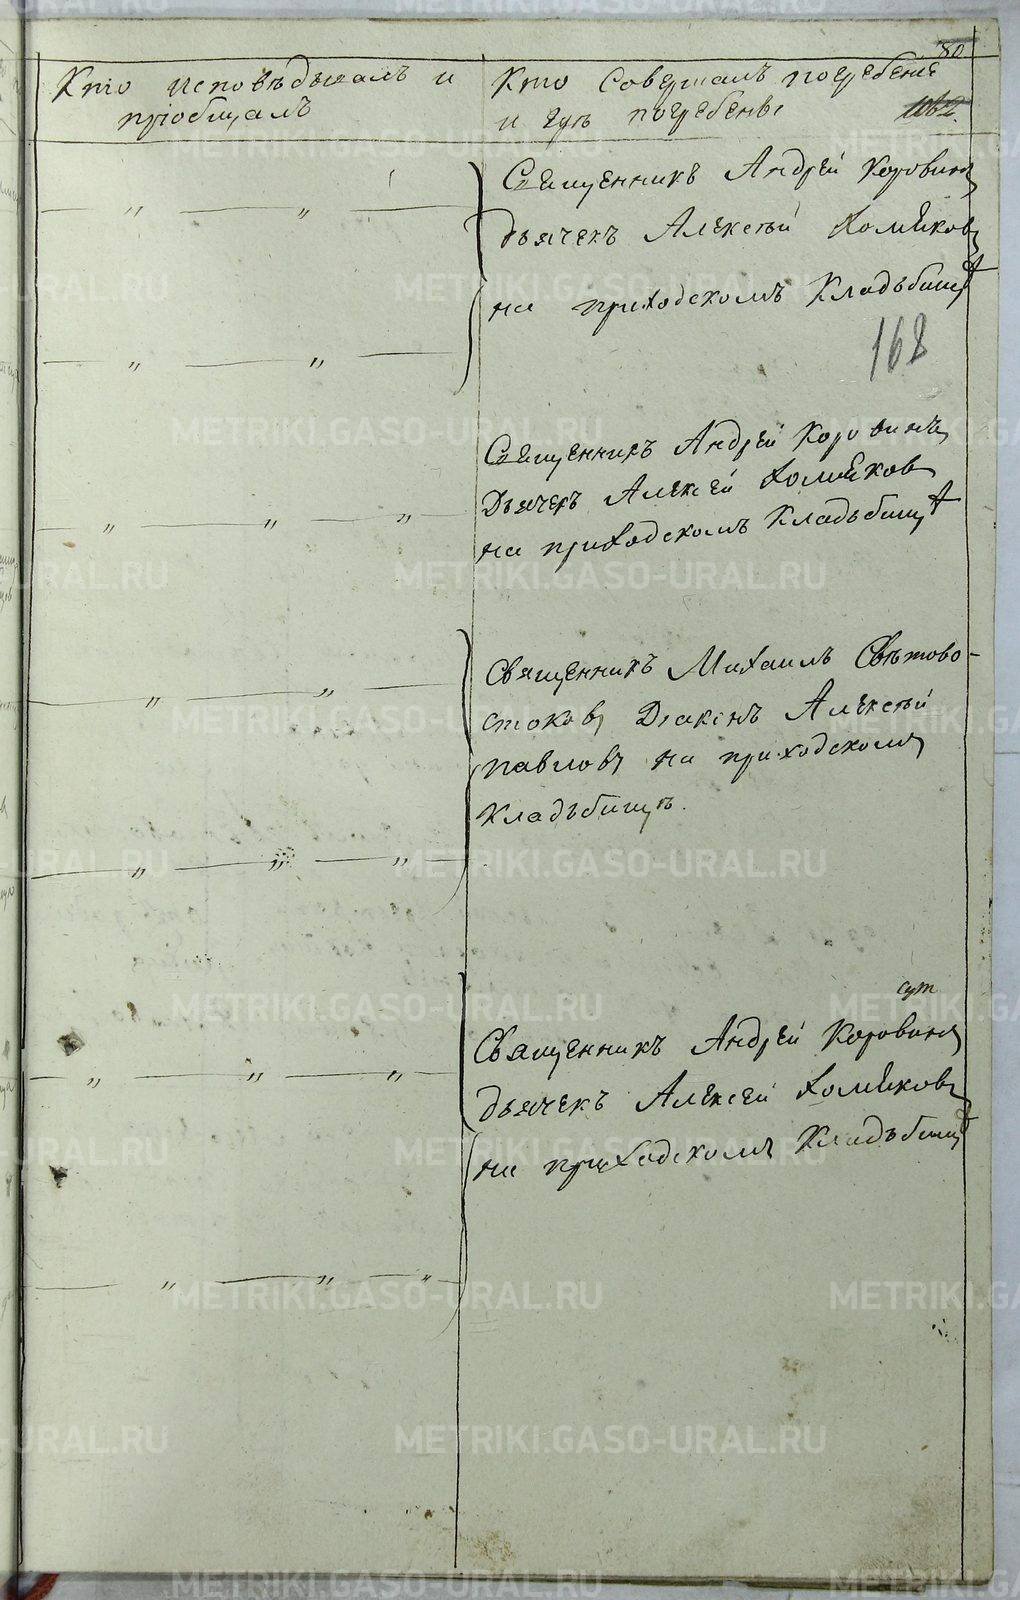 80
Кто исповѣдывалъ и
прiобщалъ
Кто Совершалъ погребенiе
и гдѣ погребены
162
Священникъ Андрей Коровинъ
дьячекъ Алексѣй Хомяковъ
на приходскомъ Кладьбищѣ
168
Священникъ Андрей Коровинъ
Дьячекъ Алексей Хомяковъ
на приходскомъ Кладьбищѣ
Священникъ Михаилъ Свѣтово-
стоковъ Дiаконъ Алексѣй
Павловъ на приходскомъ
Кладьбищѣ.
Священникъ Андрей Коровинъ
дьячекъ Алексей Хомяковъ
на приходскомъ Кладьбищѣ
METRIKI.GASO-URAL.RU